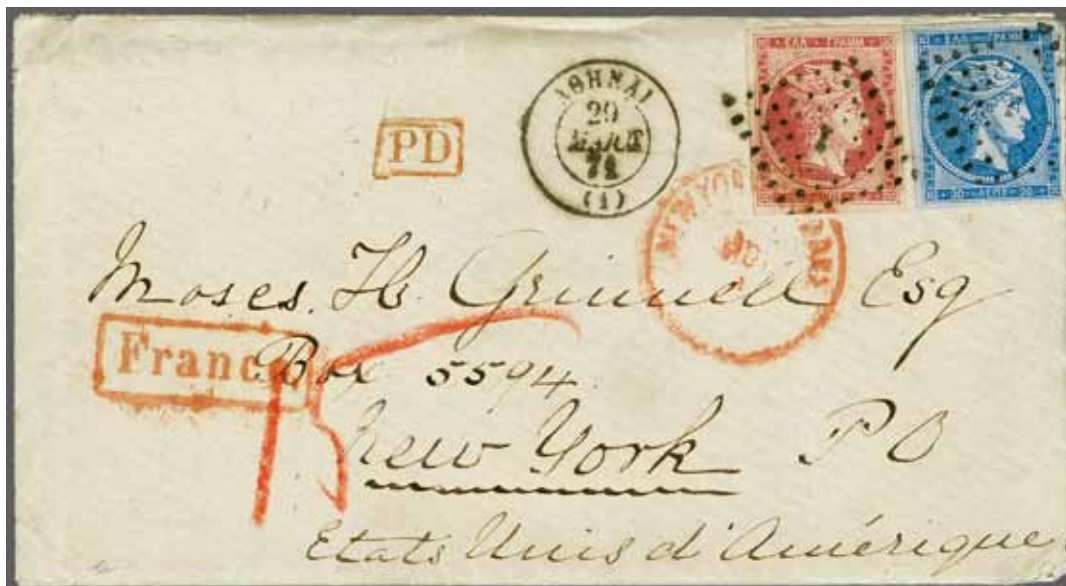 ΕΛΛ ΓΡΑΜΜ
ΕΛΛ ΓΡΑΜΜ
20 ΛΕΠΤ 20
ΑΘΗΝΑΙ
29
71
(1)
PD
NEW YORK
Moses. H. Grinnell Esq
Franco
Box 5594.
15
New York P O
Etats Unis d'Amérique